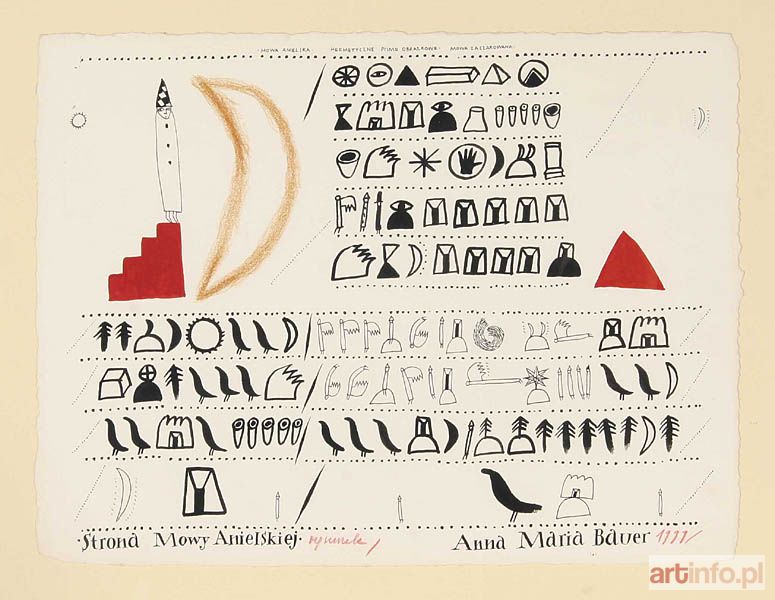 · MOWA ANIELSKA · HERMETYCZNE PISMO OBRAZKOWE · MOWA ZACZAROWANA ·
· Strona Mowy Anielskiej · rysunek / Anna Maria Bauer 1999/
artinfo.pl